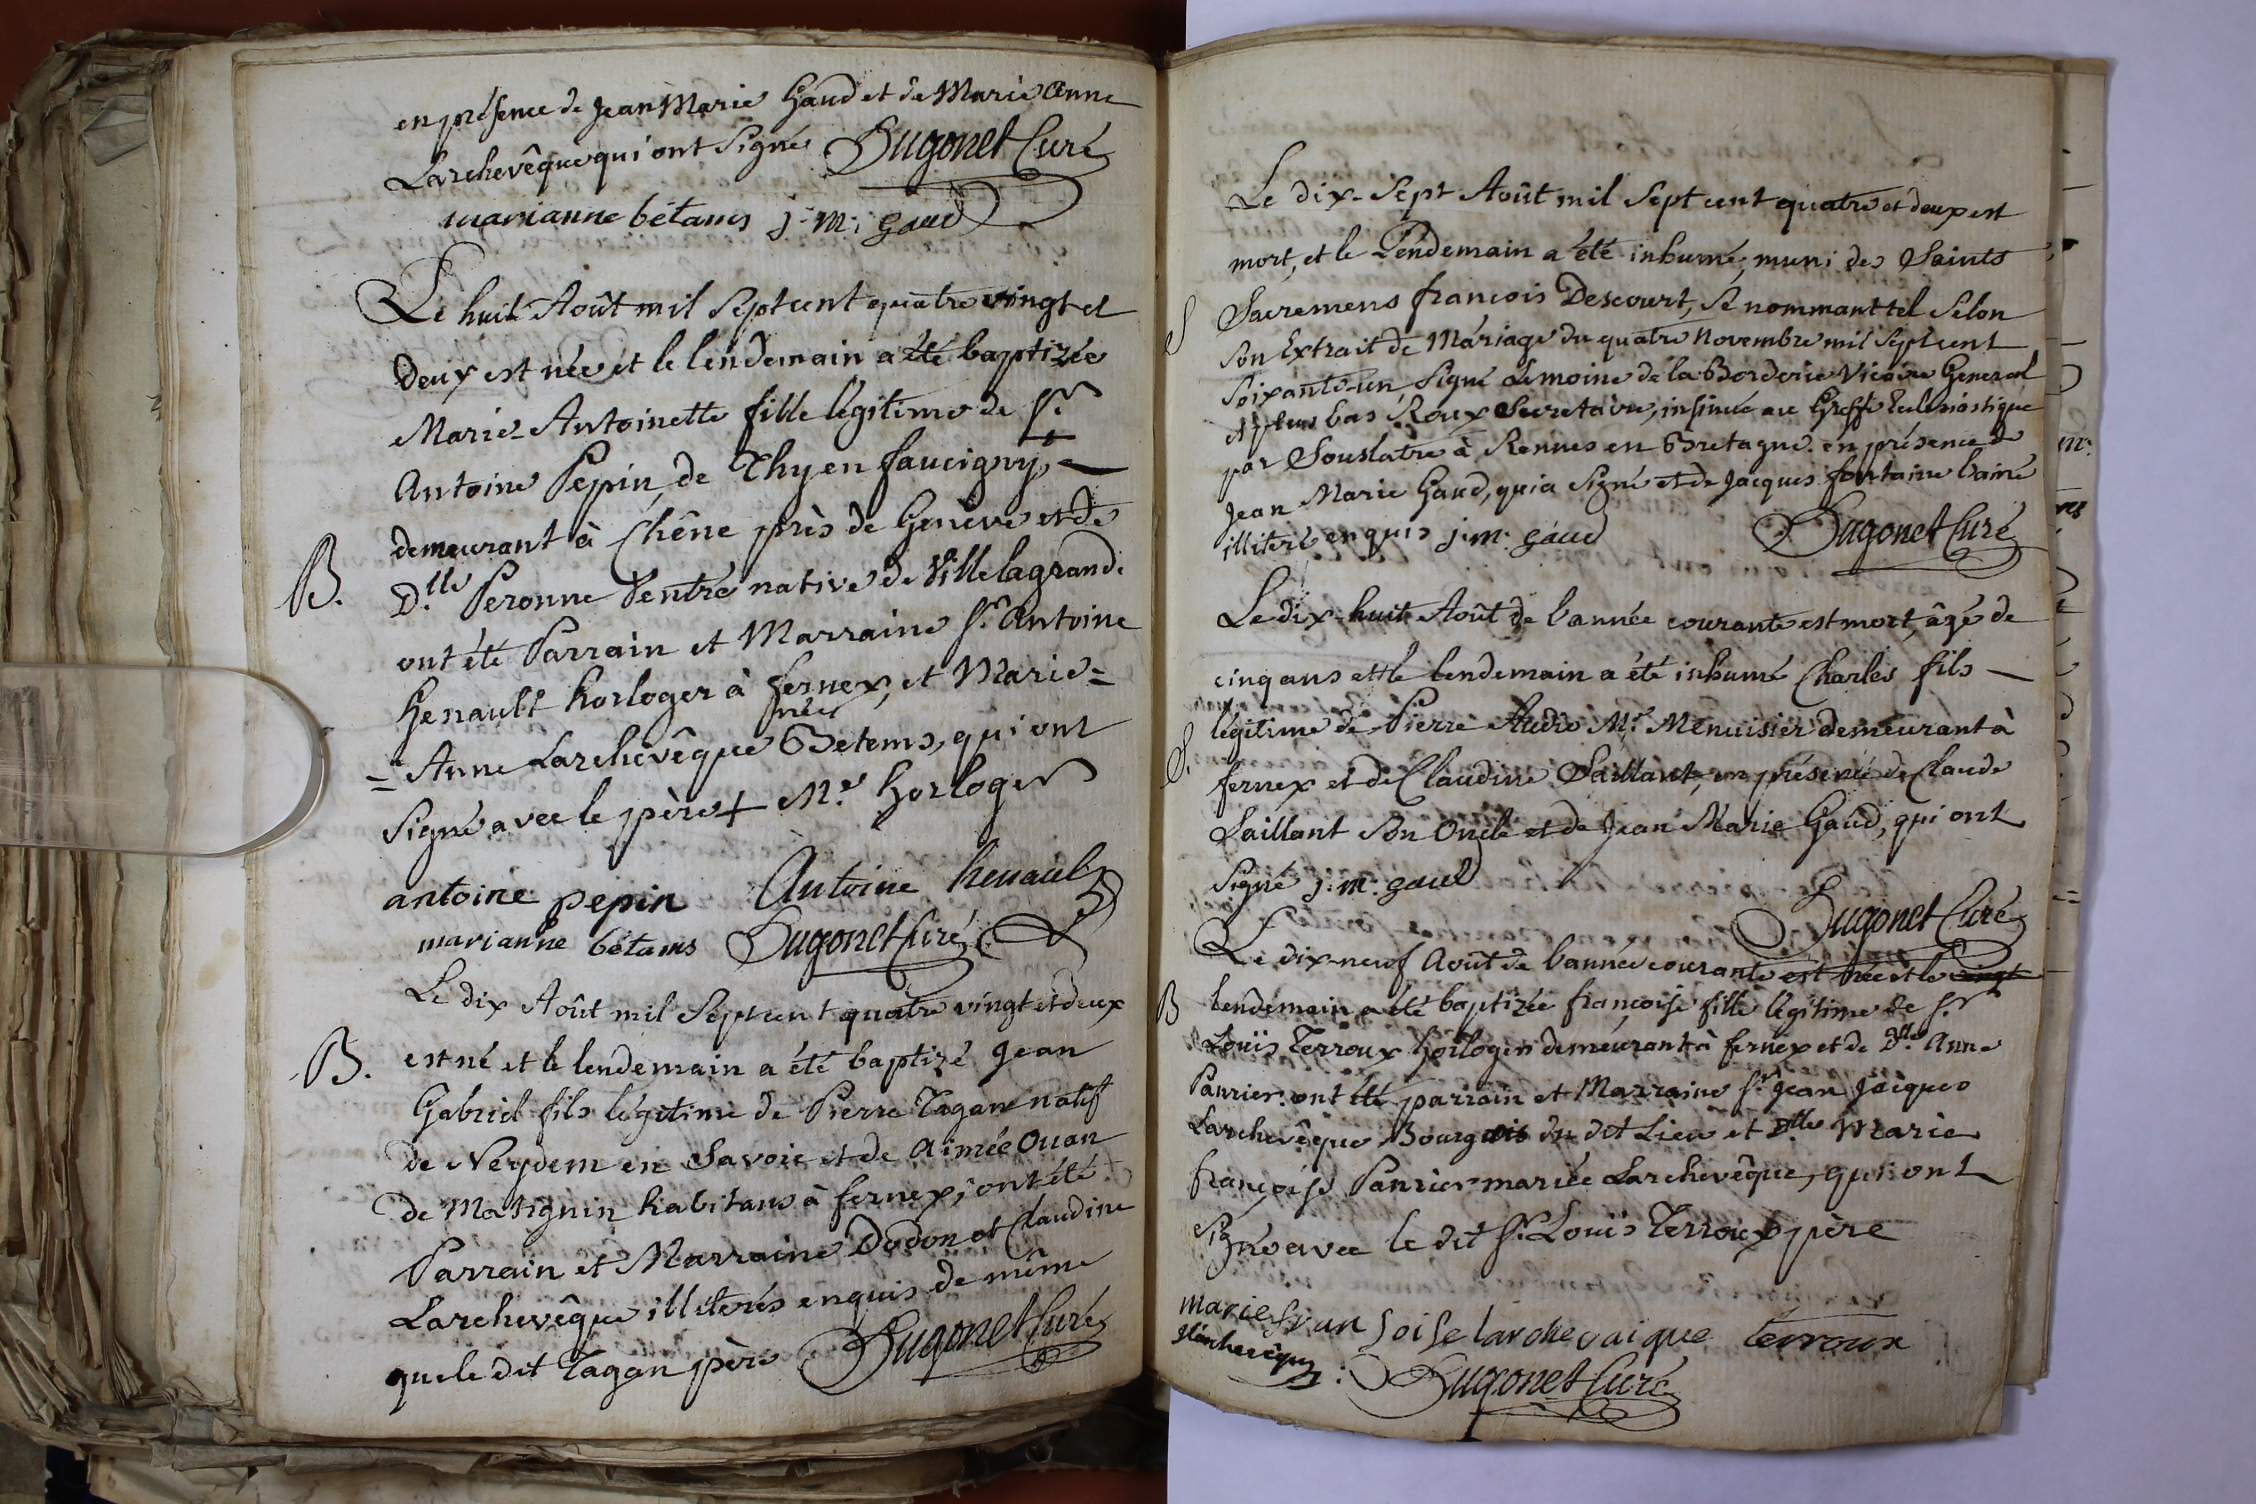 en présence de Jean Marie Gaud et de Marie Anne
Larchevêque qui ont Signé Hugonet Curé
marianne bétams j: m: gaud
Le huit Août mil Sept cent quatre vingt et
Deux est née et le lendemain a été baptizée
Marie-Antoinette fille légitime de Sr.
+
Antoine Pepin, de Thy en faucigny,
demeurant à Chêne près de Genève et de
B. D.lle Peronne Ventré native de Ville la grand.
ont été Parrain et Marraine Sr. Antoine
Henault horloger à fernex, et Marie=
née
= Anne Larchevêque Betems, qui ont
Signé avec le père + M.e horloger
antoine pepin Antoine henault
marianne bétams Hugonet Curé
Le dix Août mil Sept cent quatre vingt et deux
B. est né et le lendemain a été baptizé Jean
Gabriel fils légitime de Pierre Tagan natif
de Neydem en Savoie et de Aimée Ouan
de Matignin habitans à fernex; ont été
Parrain et Marraine Dodon et Claudine
Larchevêque illiterés enquis de même
que le dit Tagan père Hugonet Curé
Le dix-Sept Août mil Sept cent quatre et deux est
mort, et le Lendemain a été inhumé, muni des Saints
S Sacremens françois Descourt, Se nommant tel Selon
Son Extrait de Mariage du quatre Novembre mil Sept cent
Soixante-un, Signé Lemoine de la Borderie Vicaire General
et plus bas Roux Secretaire, insinué au Greffe Eclesiastique
par Souslatre à Rennes en Bretagne. en présence de
Jean Marie Gaud, qui a Signé et de Jacques fontaine l'ainé
illiteré enquis j: m: gaud Hugonet Curé
Le dix-huit Août de l'année courante est mort, âgé de
cinq ans et le lendemain a été inhumé Charles fils
S. légitime de Pierre Audio M.e Menuisier demeurant à
fernex et de Claudine Saillant, en présence de Claude
Saillant Son Oncle et de Jean Marie Gaud, qui ont
Signé j: m: gaud
Hugonet Curé
Le dix-neuf Août de l'année courante est née et le vingt
B lendemain a été baptizée françoise fille légitime de Sr.
Louis Terroux horloger demeurant à fernex et de D.lle Anne
Panrier. ont été parrain et Marraine Sr. Jean Jacques
Larchevêque Bourgeois du dit Lieu et D.lle Marie
françoise Panrier mariée Larchevêque, qui ont
Signé avec le dit Sr. Louis Terroux père
marie fran Soise larchevaique terroux
Hugonet Curé